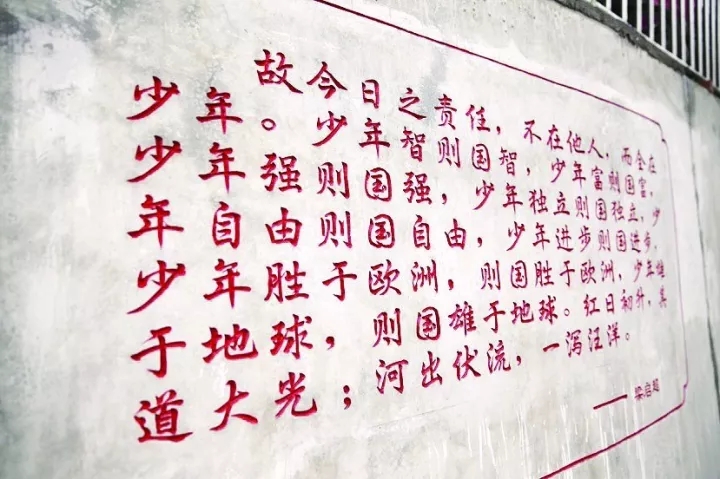 故今日之责任，不在他人，而全在
少年。少年智则国智，少年富则国富，
少年强则国强，少年独立则国独立，少
年自由则国自由，少年进步则国进步，
少年胜于欧洲，则国胜于欧洲，少年雄
于地球，则国雄于地球。红日初升，其
道大光；河出伏流，一泻汪洋。
——梁启超